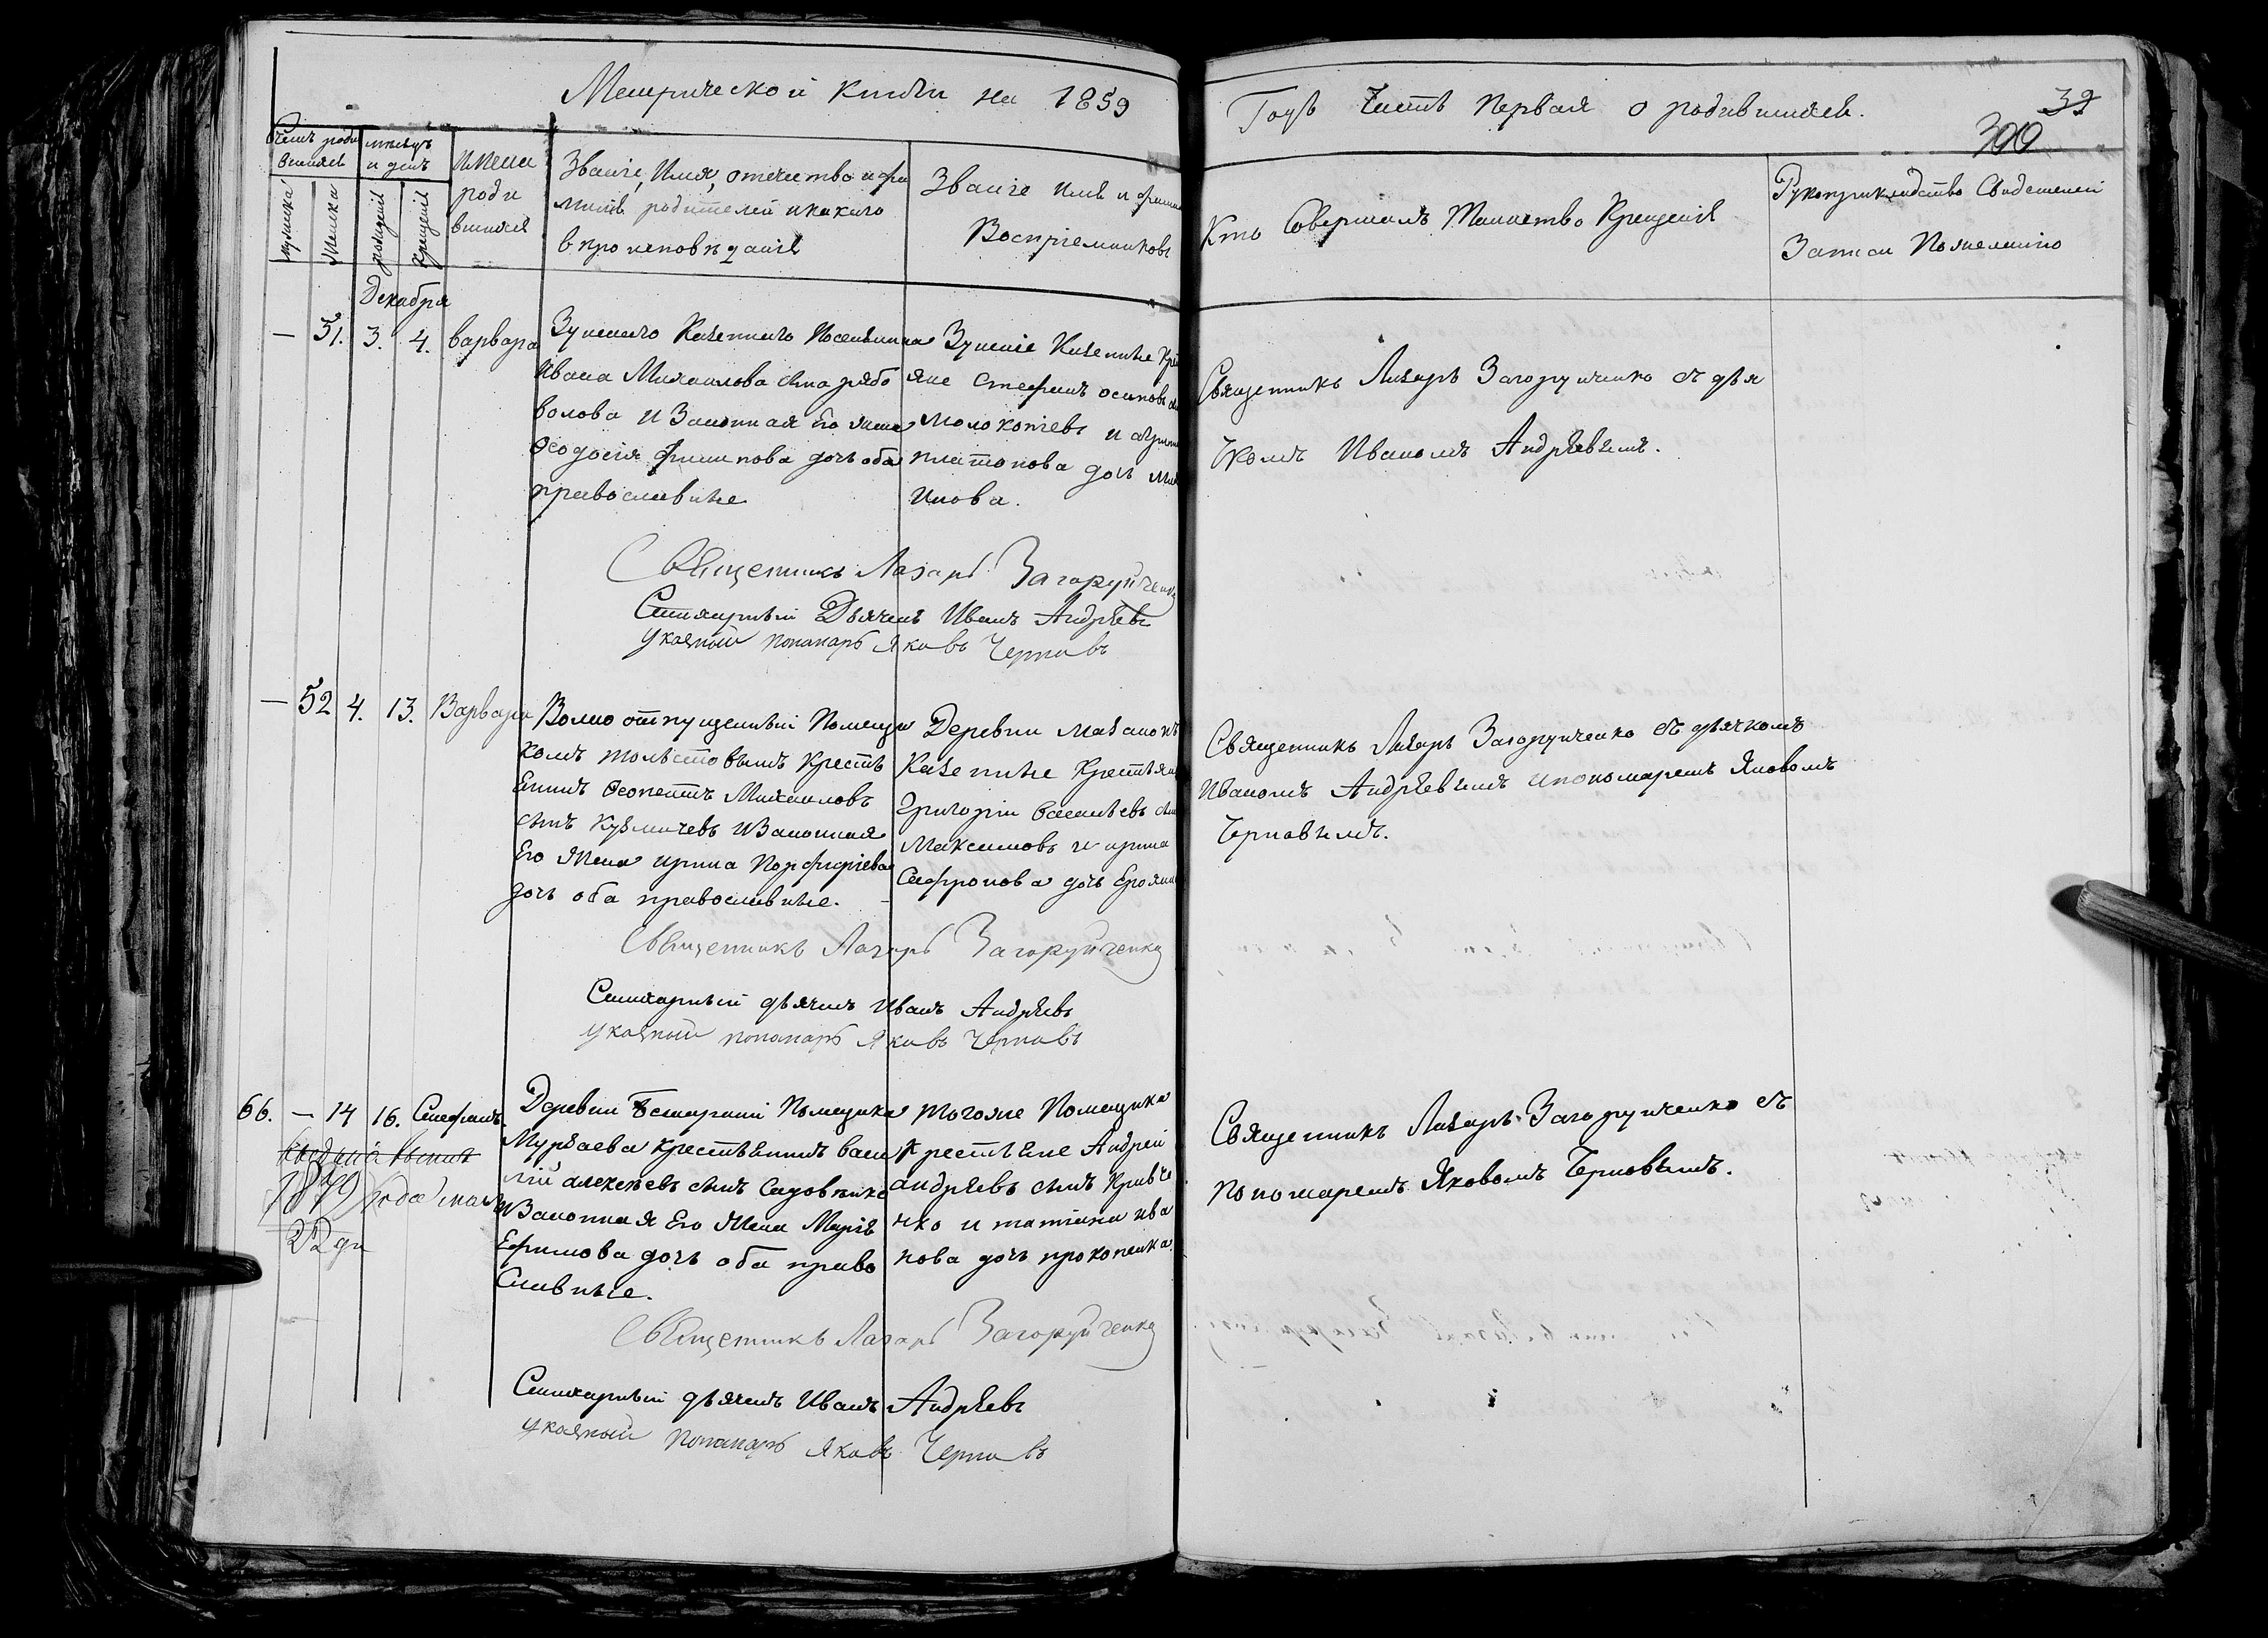 Метрической книги на 1859
Годъ Часть Первая о родившихся.
39
300
Счетъ родившихся
мѣсяцъ и день
Имена родившихся
мужеска
женска
рожденія
крещенія
Званіе, Имя, отечество и фа
милія родителей и какого
вѣроисповѣданія
Званіе Имя и фамилія
Воспріемниковъ
Кто Совершалъ Таинство Крещенія
Рукоприкладство Свидетелей
Записи По желанію
Декабря
— 51. 3. 4. варвара
Ивана Михаилова сына рябо
волова и Законная его жена
Феодосія Филипова дочь оба
православные
яне Стефанъ осиповъ
платонова дочь
Священникъ Лазарь Загоруйченко съ дья
чкомъ Иваномъ Андрѣевымъ.
Священникъ Лазарь Загоруйченко
Стихарный Дьячекъ Иванъ Андрѣевъ
указный пономарь Яковъ Черновъ
— 52 4. 13. Варвара
Волно отпущенный Помещи
комъ толстовымъ Крестья
Енинъ Феопентъ Михаиловъ
сынъ Кузмичевъ и Законная
Его Жена ирина Порфиріева
дочь оба православные.
Деревни
Казенные Крестьяне
Григорій Василѣевъ сынъ
Максимовъ и ирина
Сафронова дочь
Священникъ Лазарь Загоруйченко съ дьячкомъ
Иваномъ Андрѣевымъ и пономаремъ Яковомъ
Черновымъ.
Священникъ Лазарь Загоруйченко
Стихарный дьячекъ Иванъ Андрѣевъ
указный пономарь Яковъ Черновъ
66. — 14 16. Стефанъ.
1879 года
22 дн
Деревни Помещика
крестьЕнинъ васи
лій алексѣевъ сынъ Садовнико
и Законная Его Жена Марія
Ефимова дочь оба право
Славные.
тогоже Помещика
КрестьЕне Андрей
андрѣевъ сынъ Кривче
нко и татіана ива
нова дочь прокопенкова.
Священникъ Лазарь Загоруйченко съ
пономаремъ Яковомъ Черновымъ.
Священникъ Лазарь Загоруйченко
Стихарный дьячекъ Иванъ Андрѣевъ
указный пономарь Яковъ Черновъ